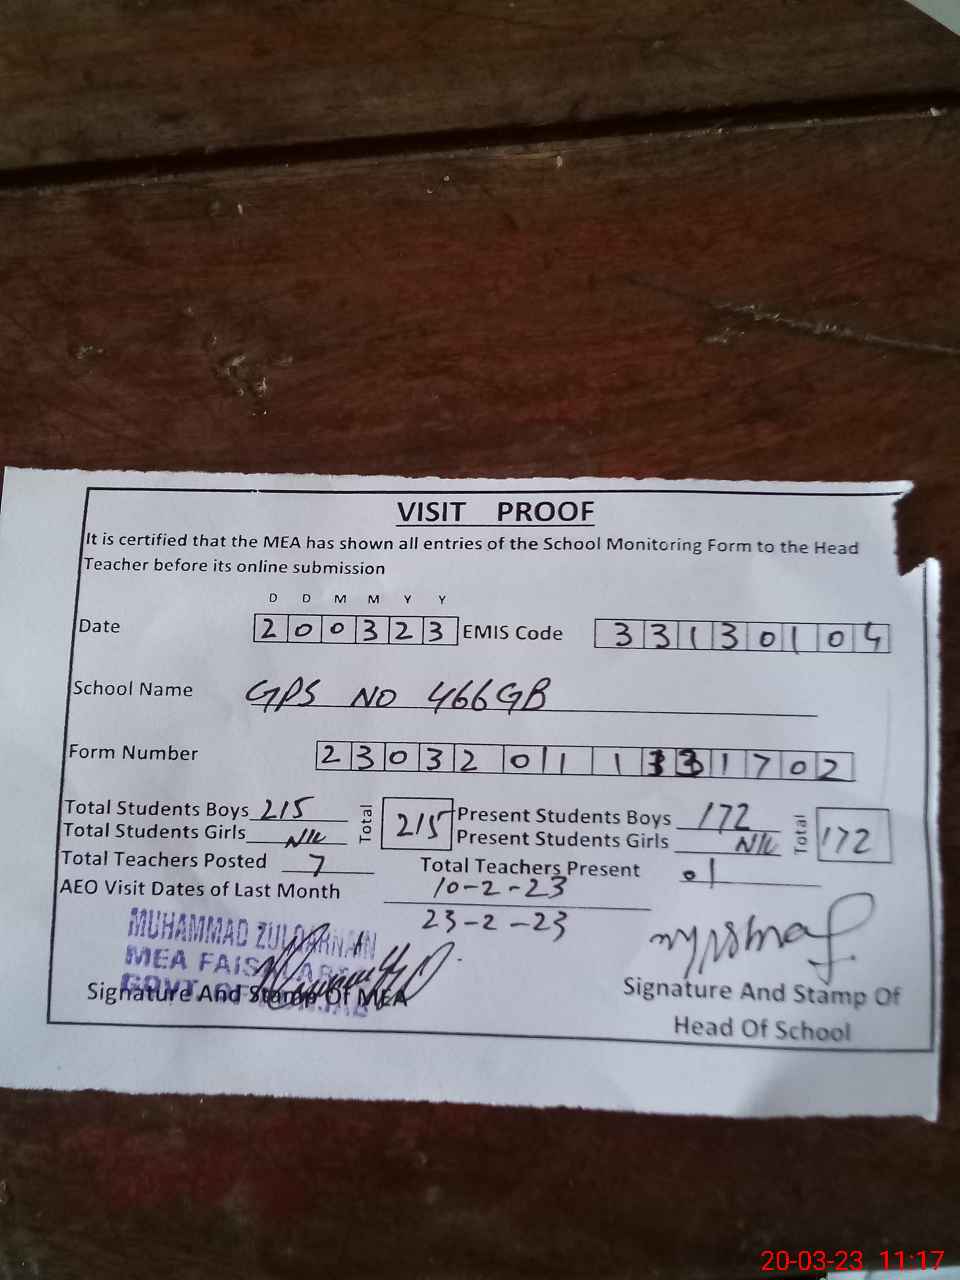 VISIT PROOF
It is certified that the MEA has shown all entries of the School Monitoring Form to the Head
Teacher before its online submission
D D M M Y Y
Date 200323 EMIS Code 33130104
School Name GPS NO 466GB
Form Number 23032011 1331702
Total Students Boys 215 Total 215 Present Students Boys 172 Total 172
Total Students Girls Nil Present Students Girls Nil
Total Teachers Posted 7 Total Teachers Present 01
AEO Visit Dates of Last Month 10-2-23
23-2-23
MUHAMMAD ZULQARNAIN
MEA FAISALABAD
GOVT OF PUNJAB
Signature And Stamp Of MEA
Signature And Stamp Of
Head Of School
20-03-23 11:17